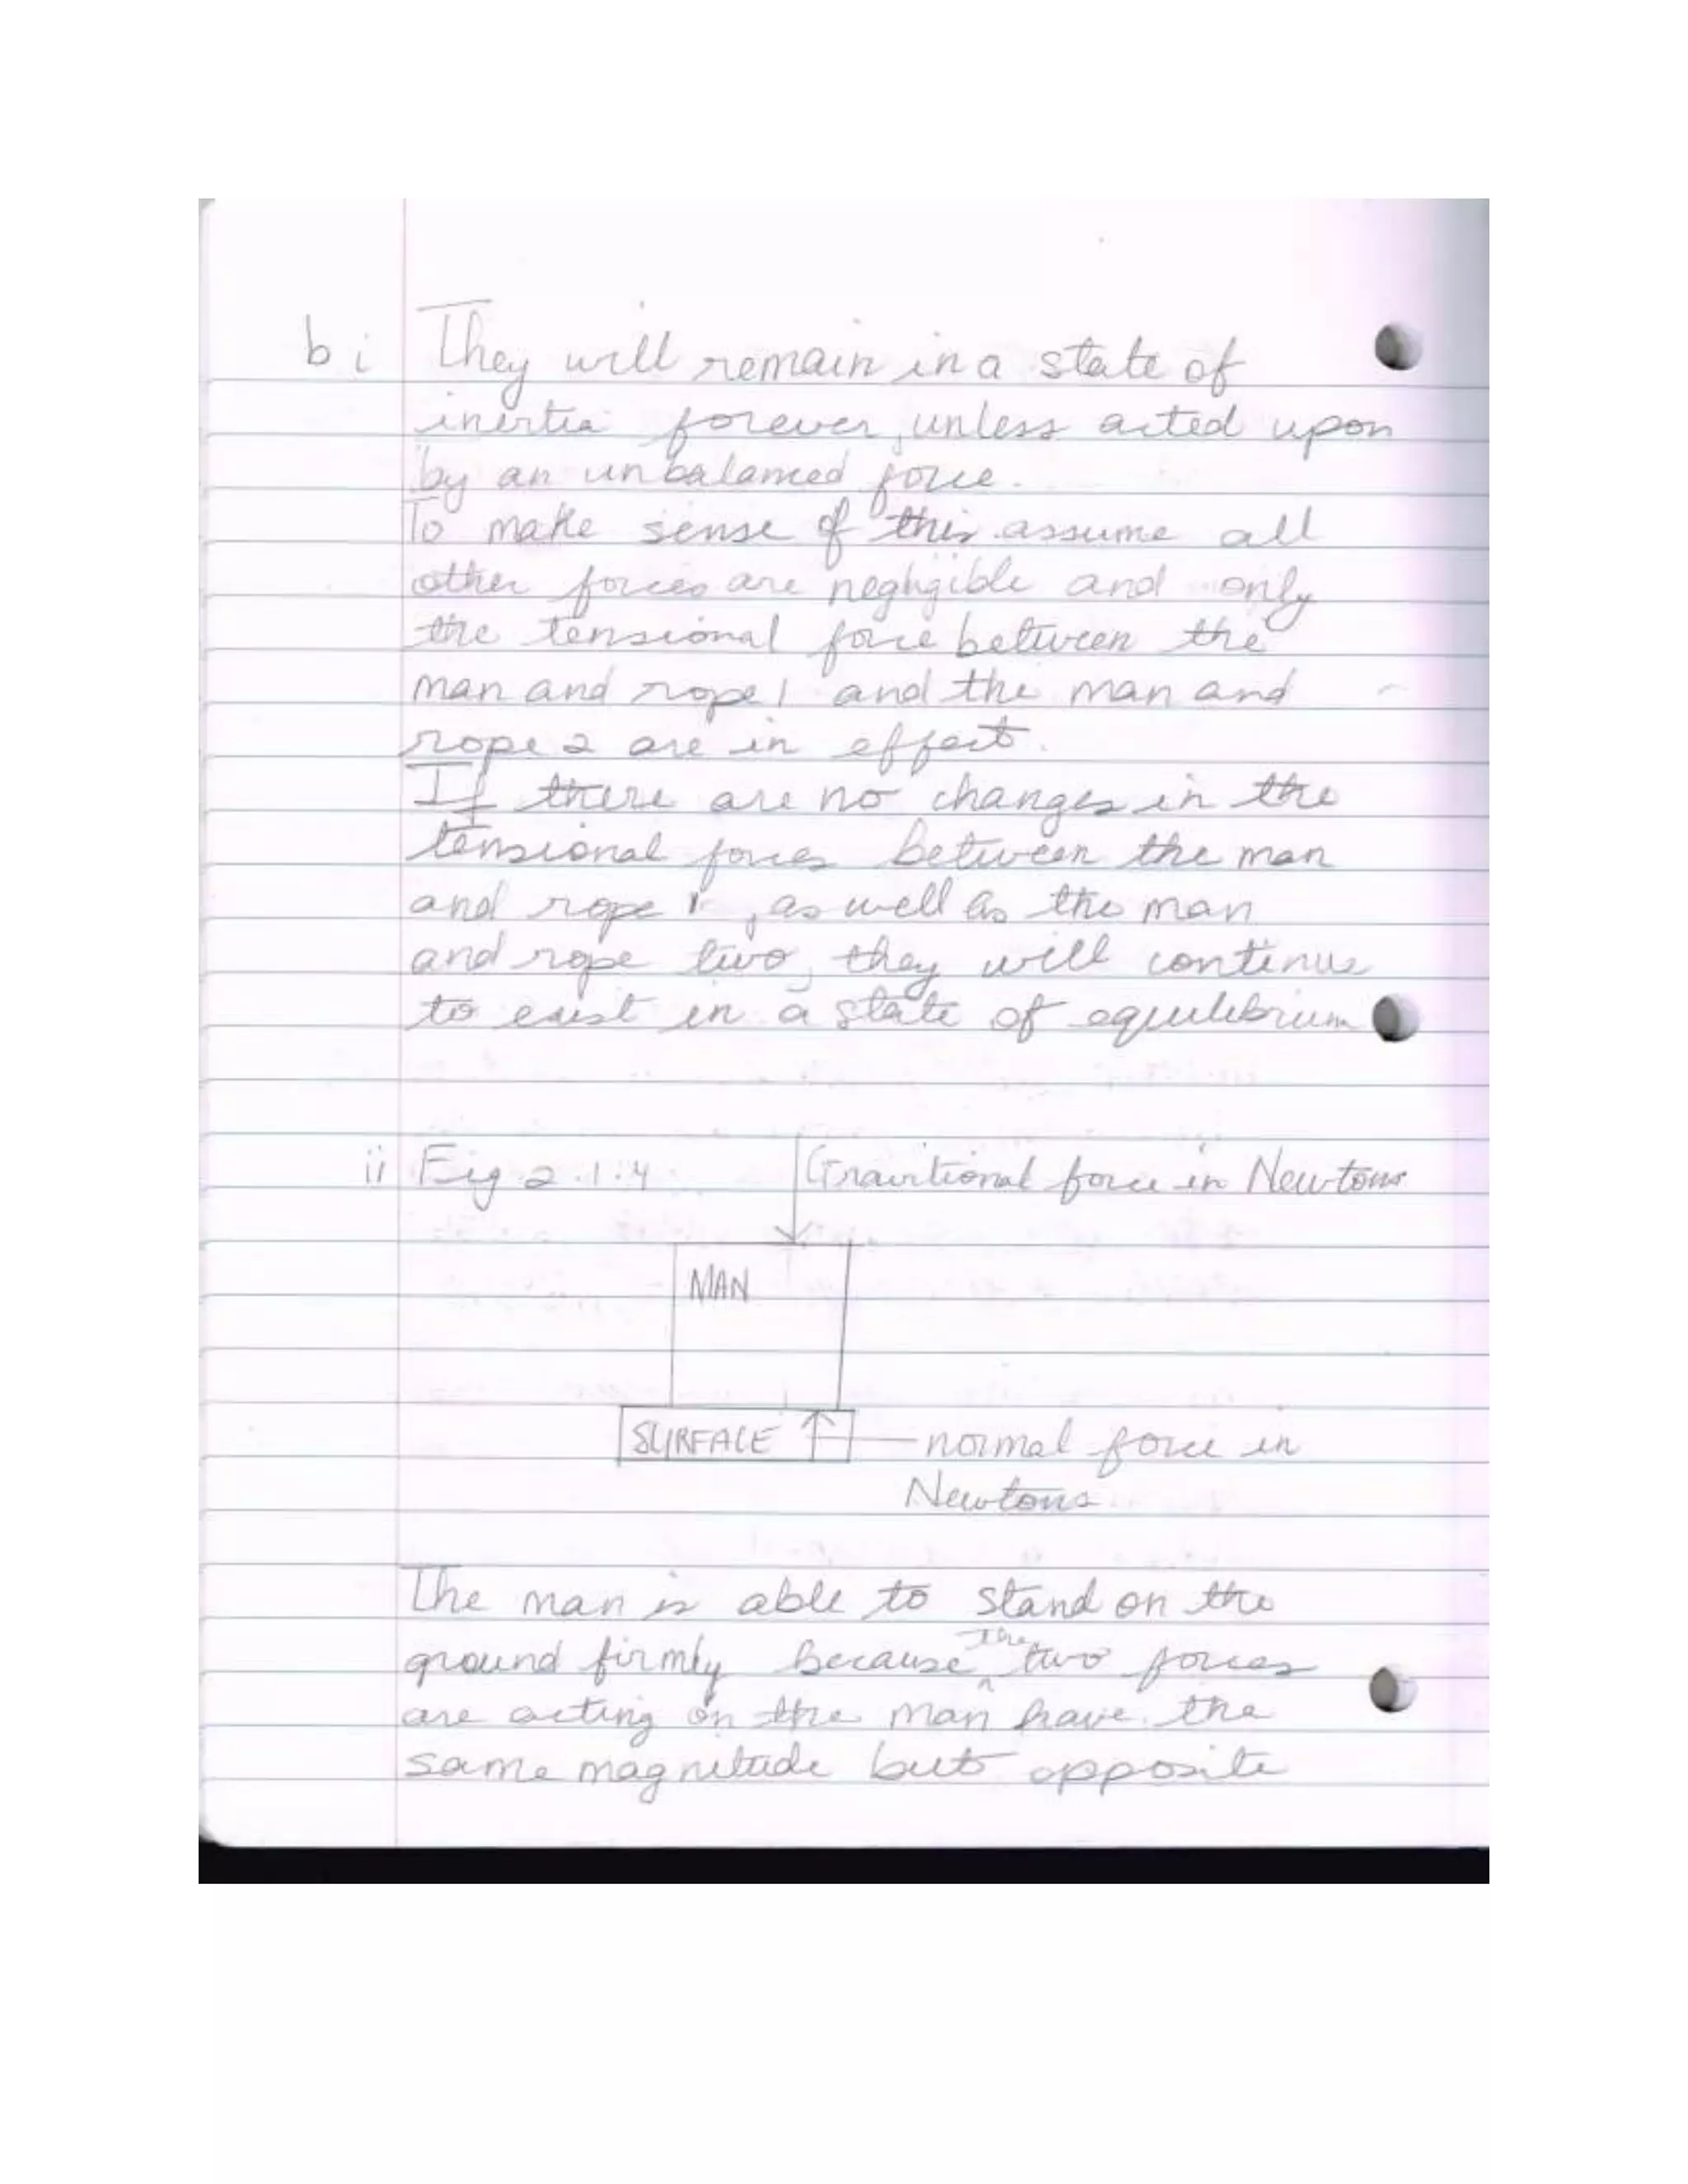 b i They will remain in a state of
inertia forever, unless acted upon
by an unbalanced force.
To make sense of this assume all
other forces are neghgible and only
the tensional force between the
man and rope 1 and the man and
rope 2 are in effect.
If there are no changes in the
tensional forces between the man
and rope 1, as well as the man
and rope two, they will continue
to exist in a state of equilibrium
ii Fig 2.1:4 Gravitional force in Newtons
MAN
SURFACE normal force in
Newtons
The man is able to stand on the
ground firmly because the two forces
are acting on the man have the
same magnitude but opposite